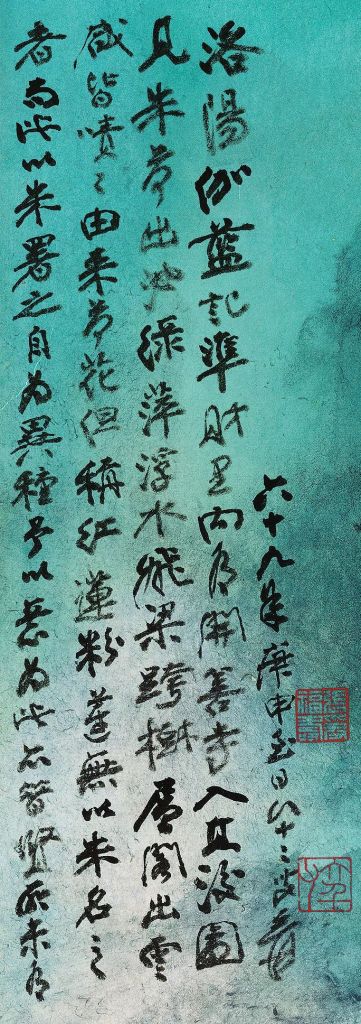 洛陽伽藍記準財里內有開善寺入其後園
見朱荷出池綠萍浮水飛梁跨樹層閣出雲
咸皆嘖〻由來荷花但稱紅蓮粉蓮無以朱名之
者而此以朱署之自為異種予以意為此亦昔賢所未有
六十九年庚申至日八十二叟爰